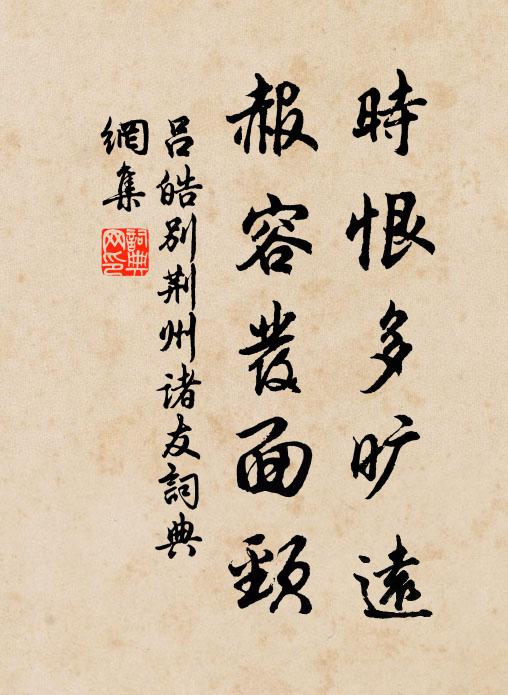 時恨多旷遠
赧容發面頸
呂皓别荆州诸友詞典
網集
詞典
网印